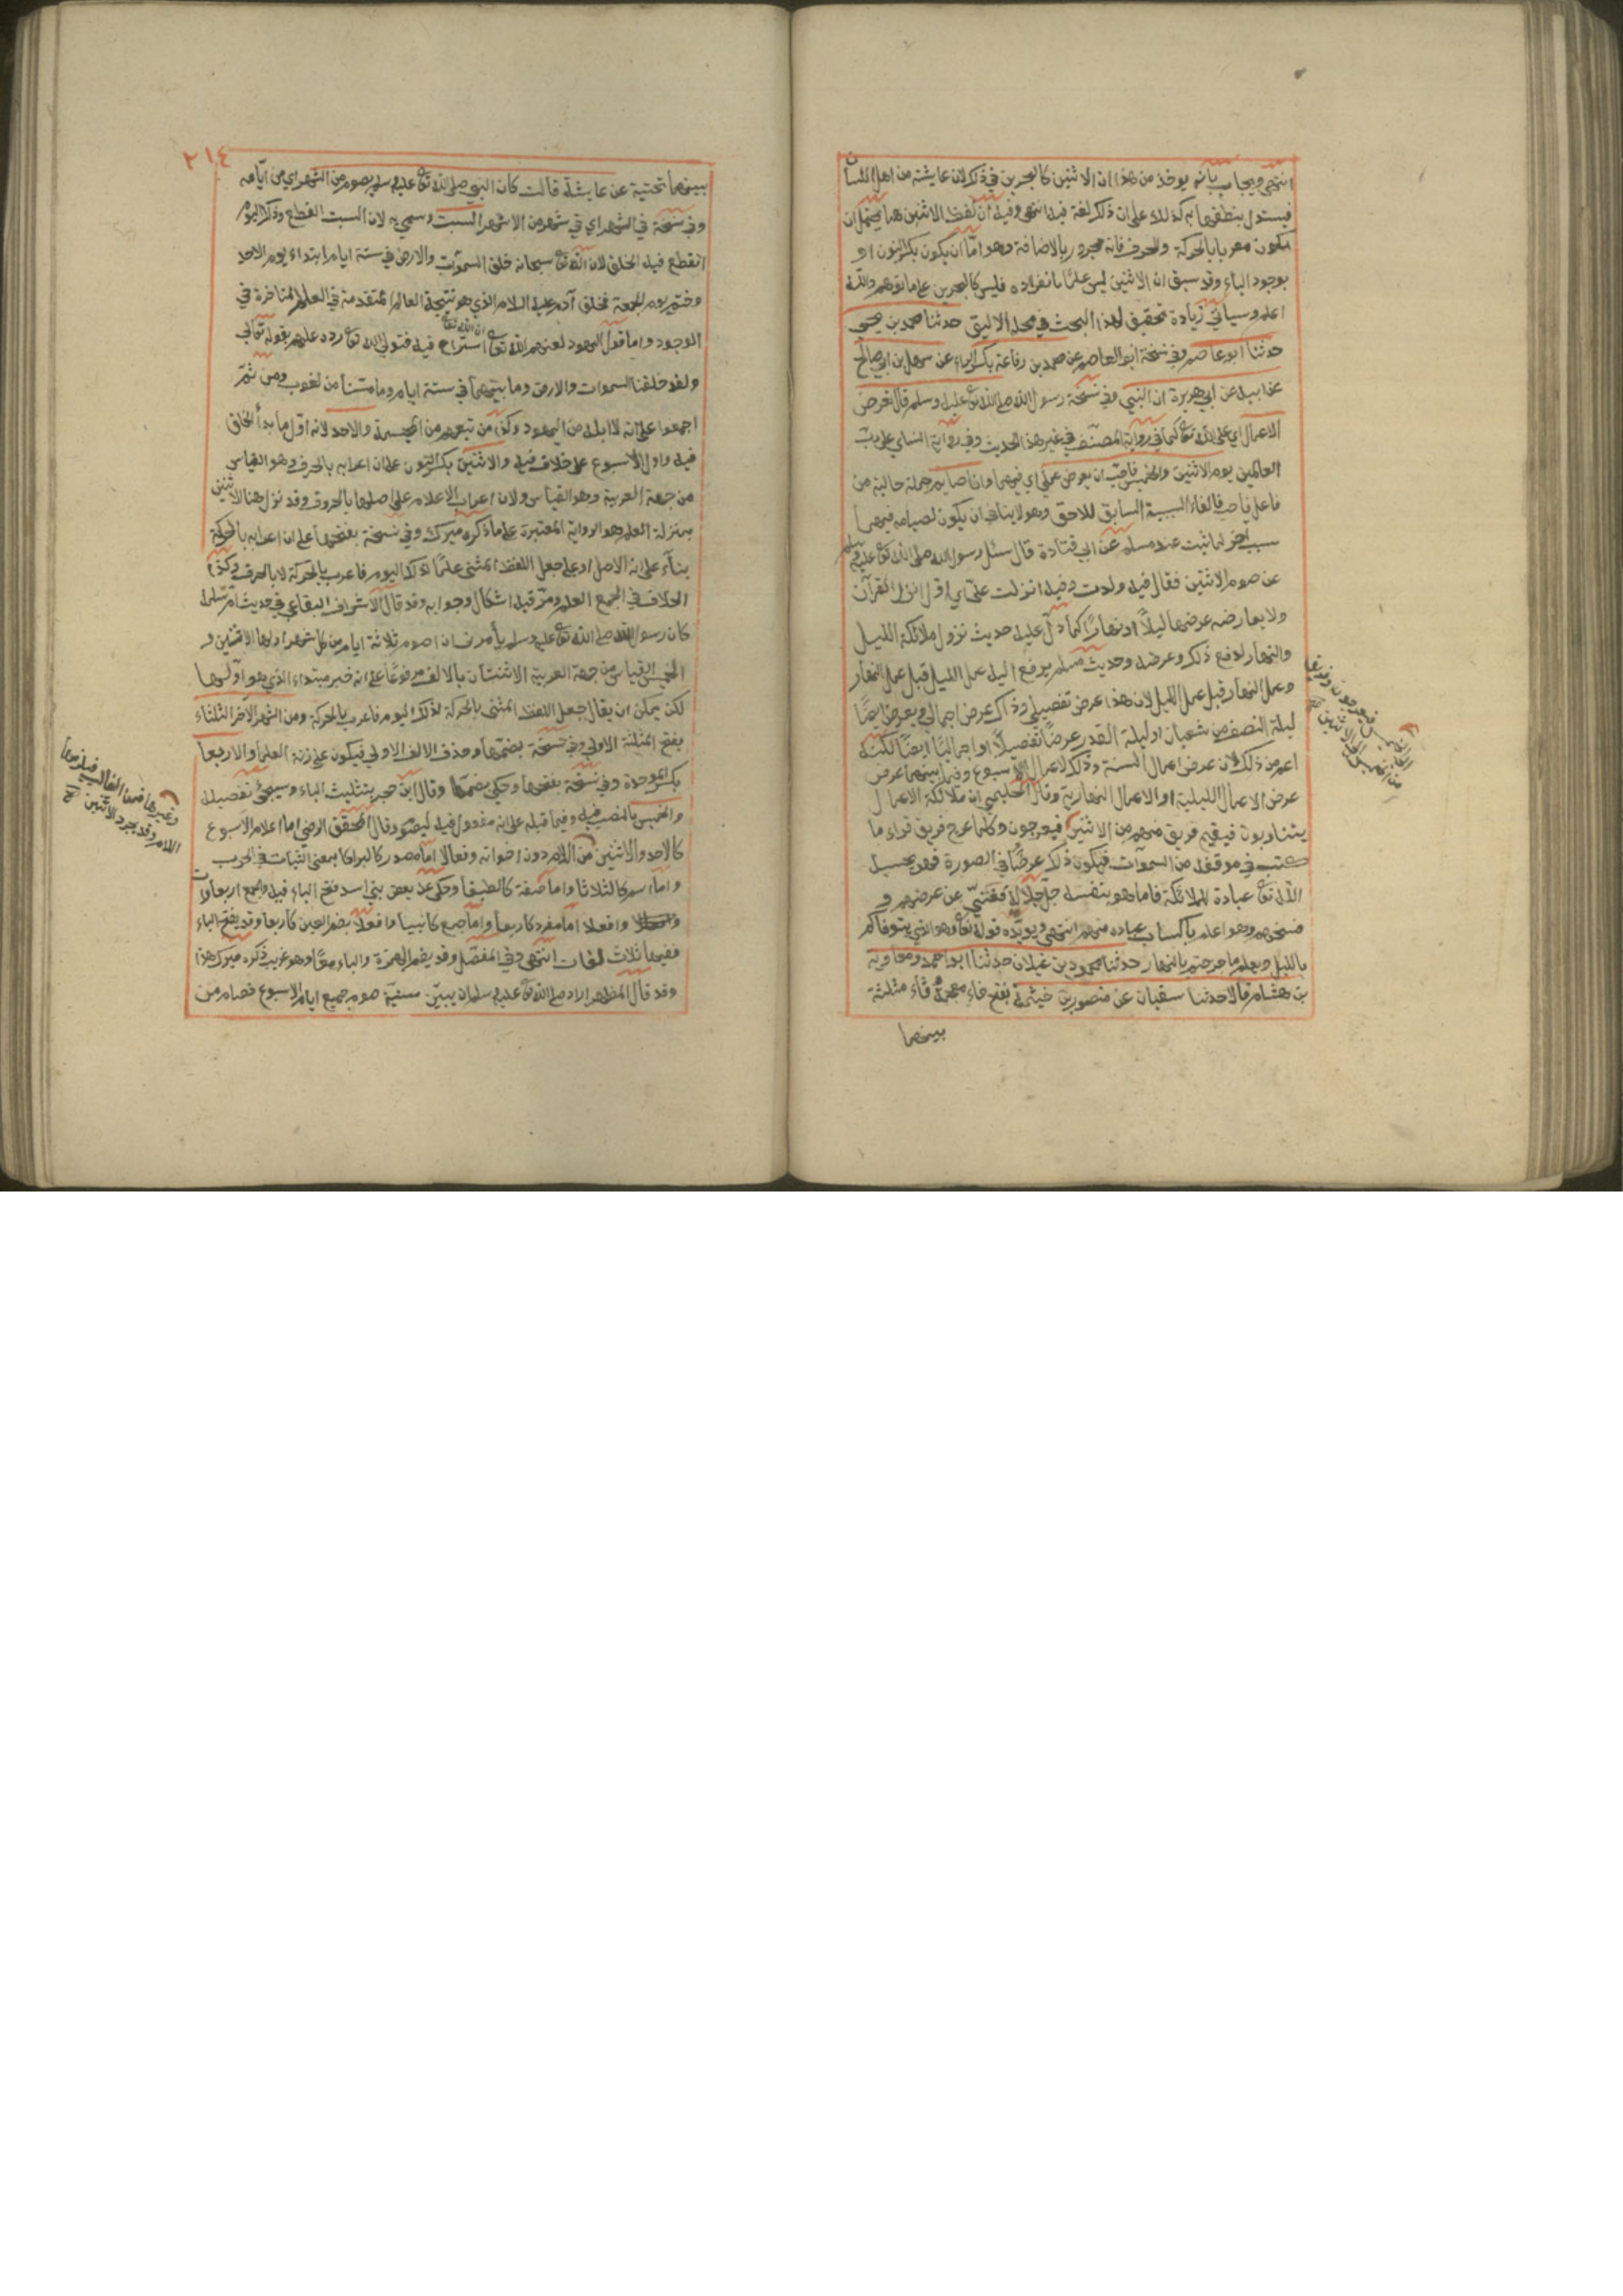 انتهى ويجاب بانه يوخذ من هذا ان الاثنين كالبحرين في ذلك لان عايشة من اهل اللسان
فيستدل بنطقها به كذلك على ان ذلك لغة فيه انتهى وفيه ان لفظ الاثنين هنا يحتمل ان
يكون معربا بالحركة والحرف فانه مجرور بالاضافة وهو اما ان يكون بكسر النون او
بوجود الياء وقد سبق ان الاثنين ليس علما بانفراده فليس كالبحرين على ما توهم والله
اعلم وسياتي زيادة تحقيق لهذا البحث في محله الاليق حدثنا محمد بن يحيى
حدثنا ابو عاصم وفي نسخة ابو العاصم عن محمد بن رفاعة بكسر الراء عن سهيل بن ابي صالح
عن ابيه عن ابي هريرة ان النبي وفي نسخة رسول الله صلى الله تع عليه وسلم قال تعرض
الاعمال اي على الله تع كما في رواية المصنف في غير هذا الحديث وفي رواية النساي على رب
العالمين يوم الاثنين والخميس فاحب ان يعرض عملي اي فيهما وانا صايم جملة حالية من
فاعل فاحب فالفاء السببية السابق للاحق وهو لا ينافي ان يكون لصيامه فيهما
سبب اخر لما ثبت عند مسلم عن ابي قتادة قال سئل رسول الله صلى الله تع عليه وسلم
عن صوم الاثنين فقال فيه ولدت وفيه انزلت علي اي اول انزل القرآن
ولا يعارضه عرضها ليلا او نهارا كما دل عليه حديث نزول ملائكة الليل
والنهار لدفع ذلك وعرضه وحديث مسلم يرفع اليه عمل الليل قبل عمل النهار
وعمل النهار قبل عمل الليل لان هذا عرض تفصيلي وذاك عرض اجمالي ويعرض ايضا
ليلة النصف من شعبان او ليلة القدر عرضا تفصيلا او اجماليا ايضا لكنه
اعم من ذلك لان عرض اعمال السنة وذلك لاعمال الاسبوع وفيما بينهما عرض
عرض الاعمال الليلية او الاعمال النهارية وقال الحليمي ان ملائكة الاعمال
يتناوبون فيقيم فريق منهم من الاثنين فيعرجون وكلما عرج فريق قراء ما
كتب في موقفه من السموات فيكون ذلك عرضا في الصورة فهو يحسبه
الله تع عبادة للملائكة فاما هو بنفسه جل جلاله فغني عن عرضهم و
نسخهم وهو اعلم باكساب عباده منهم انتهى ويويده قوله تع وهو الذي يتوفاكم
بالليل ويعلم ما جرحتم بالنهار حدثنا محمود بن غيلان حدثنا ابو احمد ومعاوية
بن هشام قالا حدثنا سفيان عن منصور بن خيثمة بفتح خاء معجمة وثاء مثلثة
بينهما
٢١٤
بينهما تحتية عن عايشة قالت كان النبي صلى الله تع عليه وسلم يصوم من الشهر اي من ايامه
وفي نسخة في الشهر اي في شهر من الاشهر السبت وسمي به لان السبت القطع وذلك اليوم
انقطع فيه الخلق لان الله تع سبحانه خلق السموات والارض في ستة ايام ابتداء يوم الاحد
وختم يوم الجمعة بخلق آدم عليه السلام الذي هو نتيجة العالم المتقدمة في العلم المتاخرة في
الوجود واما قول اليهود لعنهم الله تع ان الله تعالى استراح فيه فتولى الله تع رده عليهم بقوله تعالى
ولقد خلقنا السموات والارض وما بينهما في ستة ايام وما مسنا من لغوب ومن ثم
اجمعوا على انه لا ابلد من اليهود وكذا من تبعهم من المجسمة والاحد لانه اول ما بدأ الخلق
فيه واول الاسبوع على خلاف فيه والاثنين بكسر النون على ان اعرابه بالحرف وهو القياس
من جهة العربية وهو القياس ولان اعراب الاعلام على اصلها بالحروف وقد نزل هنا الاثنين
بمنزلة العلم هو الرواية المعتبرة على ما ذكره ميرك وفي نسخة بفتحها على ان اعرابه بالحركة
بناء على انه الاصل او على جعل اللفظ المثنى علما لذلك اليوم فاعرب بالحركة لا بالحرف وكذا
الخلاف في الجمع العلم ومر قبله اشكال وجوابه وقد قال الاشراف البقاعي في حديث ام سلمة
كان رسول الله صلى الله تع عليه وسلم يأمرني ان اصوم ثلاثة ايام من كل شهر اولها الاثنين و
الخميس القياس من جهة العربية الاثنان بالالف مرفوعا على انه خبر مبتداء الذي هو اولها
لكن يمكن ان يقال جعل اللفظ المثنى بالحركة لذلك اليوم فاعرب بالحركة ومن الشهر الآخر الثلثاء
بفتح المثلثة الاولى وفي نسخة بضمها وحذف الالف الاولى فيكون على زنة العلماء والاربعا
بكسر الموحدة وفي نسخة بفتحها وحكي بضمها وقال ابن حجر بتثليث الباء وسيجئ تفصيله
والخميس بالنصب فيه وفيما قبله على انه مفعول فيه ليصوم وقال المحقق الرضي اما اعلام الاسبوع
كالاحد والاثنين من اللام دون اخواته وفعالا اما مصدر كالبراكا بمعنى الثبات في الحرب
واما اسم كالثلاثا واما صفة كالطبقا وحكي عن بعض بني اسد فتح الباء فيه والجمع اربعاوات
وافعلا اما مفرد كاربعا واما جمع كانبيا وافعلا بضم العين كاربعا وقد يفتح الباء
ففيها ثلاث لغات انتهى وفي المفصل وقد يضم الهمزة والباء معا وهو غريب ذكره ميرك هذا
وقد قال المظهر اراد صلى الله تع عليه وسلم ان يبين سنية صوم جميع ايام الاسبوع فصام من
وغيرها فمن الغالب فيلزمها
اللام وقد يجرد الاثنين صح